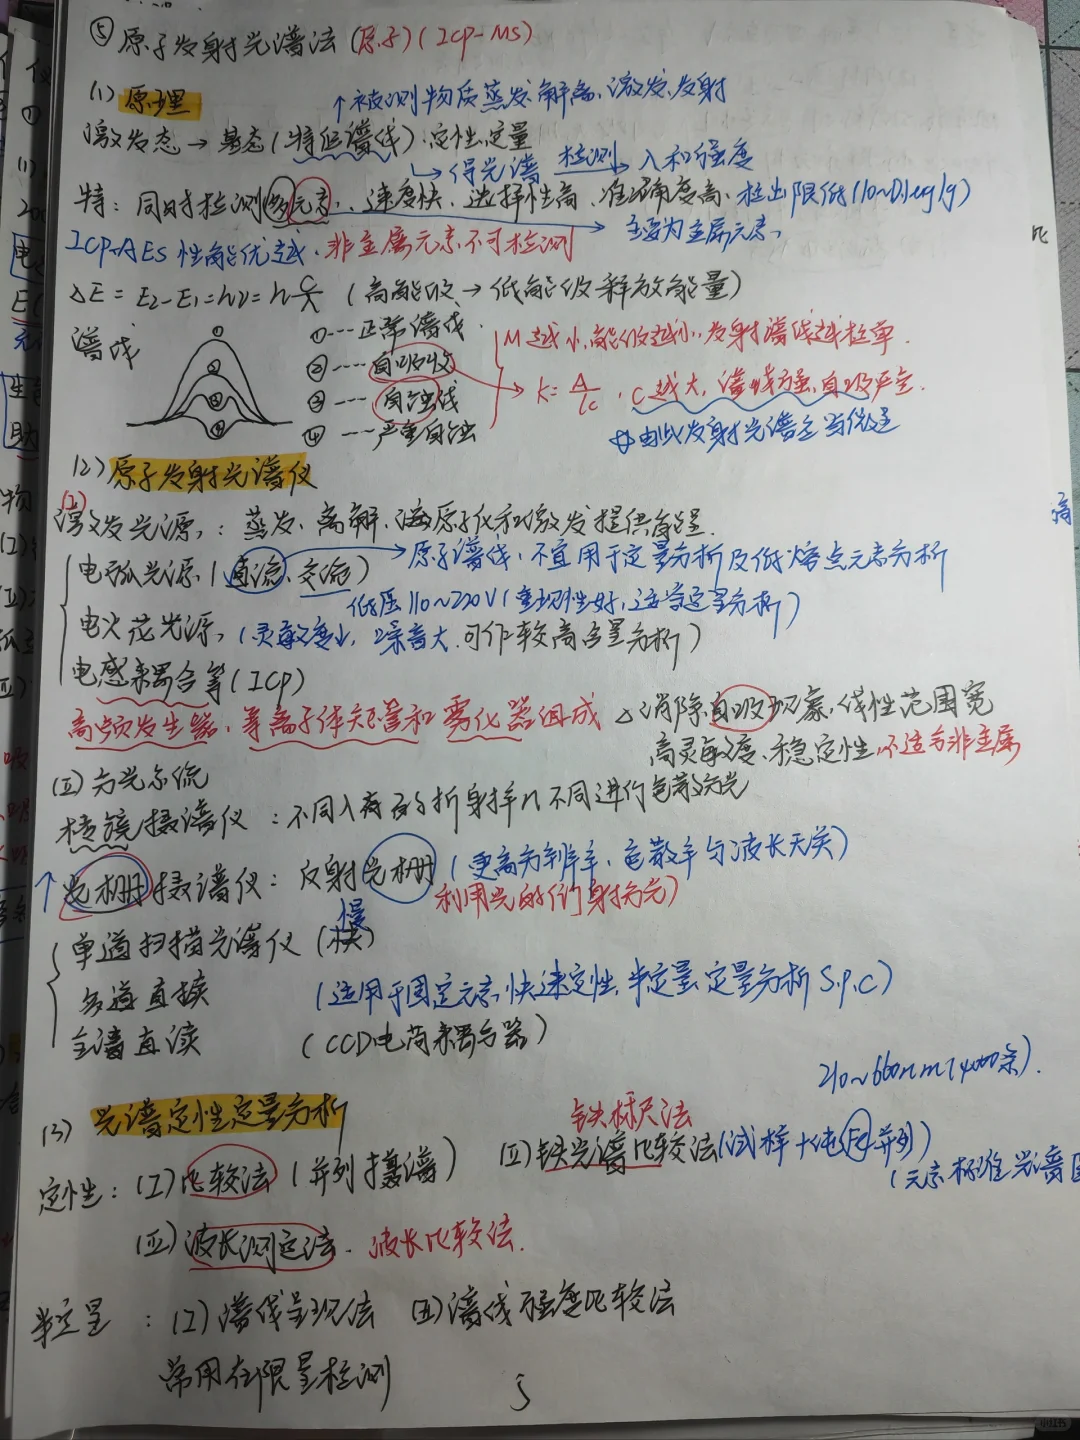 ⑤ 原子发射光谱法 (原子) (ICP-MS)
(1) 原理
↑被测物质蒸发、解离、激发、发射
激发态→基态(特征谱线):定性定量
↳得光谱 检测→ λ和强度
特: 同时检测多元素, 速度快、选择性高、准确度高、检出限低(10~0.1ug/g)
ICP-AES性能优越. 非金属元素不可检测
主要为金属元素、
△E = E2-E1=hν=h c/λ (高能级→低能级释放能量)
谱线
① ② ③ ④
①---正常谱线.
②----自吸收
③---自蚀线
④---严重自蚀
M越小,能级越小,发射谱线越粒单.
K= A/lc . C越大,谱线强,自吸严重.
由此发射光谱
(2) 原子发射光谱仪
(I)
激发光源: 蒸发、离解、原子化和激发提供能量.
电弧光源(直流、交流)
→原子谱线,不宜用于定量分析及低熔点元素分析
低压110~220V(重现性好,适当定量分析)
电火花光源,(灵敏度小,噪音大.可作较高含量分析)
电感耦合等(ICP)
高频发生器、等离子体矩管和雾化器组成
△消除自吸现象,线性范围宽
高灵敏度、稳定性,不适为非金属
(II)分光系统
棱镜摄谱仪 : 不同入的折射率n不同进行色散分光
↑光栅摄谱仪: 反射光栅 (更高分辨率, 色散率与波长无关)
利用光的衍射分光)
单道扫描光谱仪 (慢)
多道直读 (适用于固定元素,快速定性,半定量,定量分析 S.P.C)
全谱直读 (CCD电荷耦合器)
210~660nm(4000条).
(3) 光谱定性定量分析
铁标尺法
定性: (I)比较法 (并列摄谱) (II)铁光谱比较法(试样+纯Fe并列)
(元素标准光谱
(III)波长测定法. 波长比较法.
半定量 : (I)谱线呈现法 (II)谱线强度比较法
常用在限量检测
5